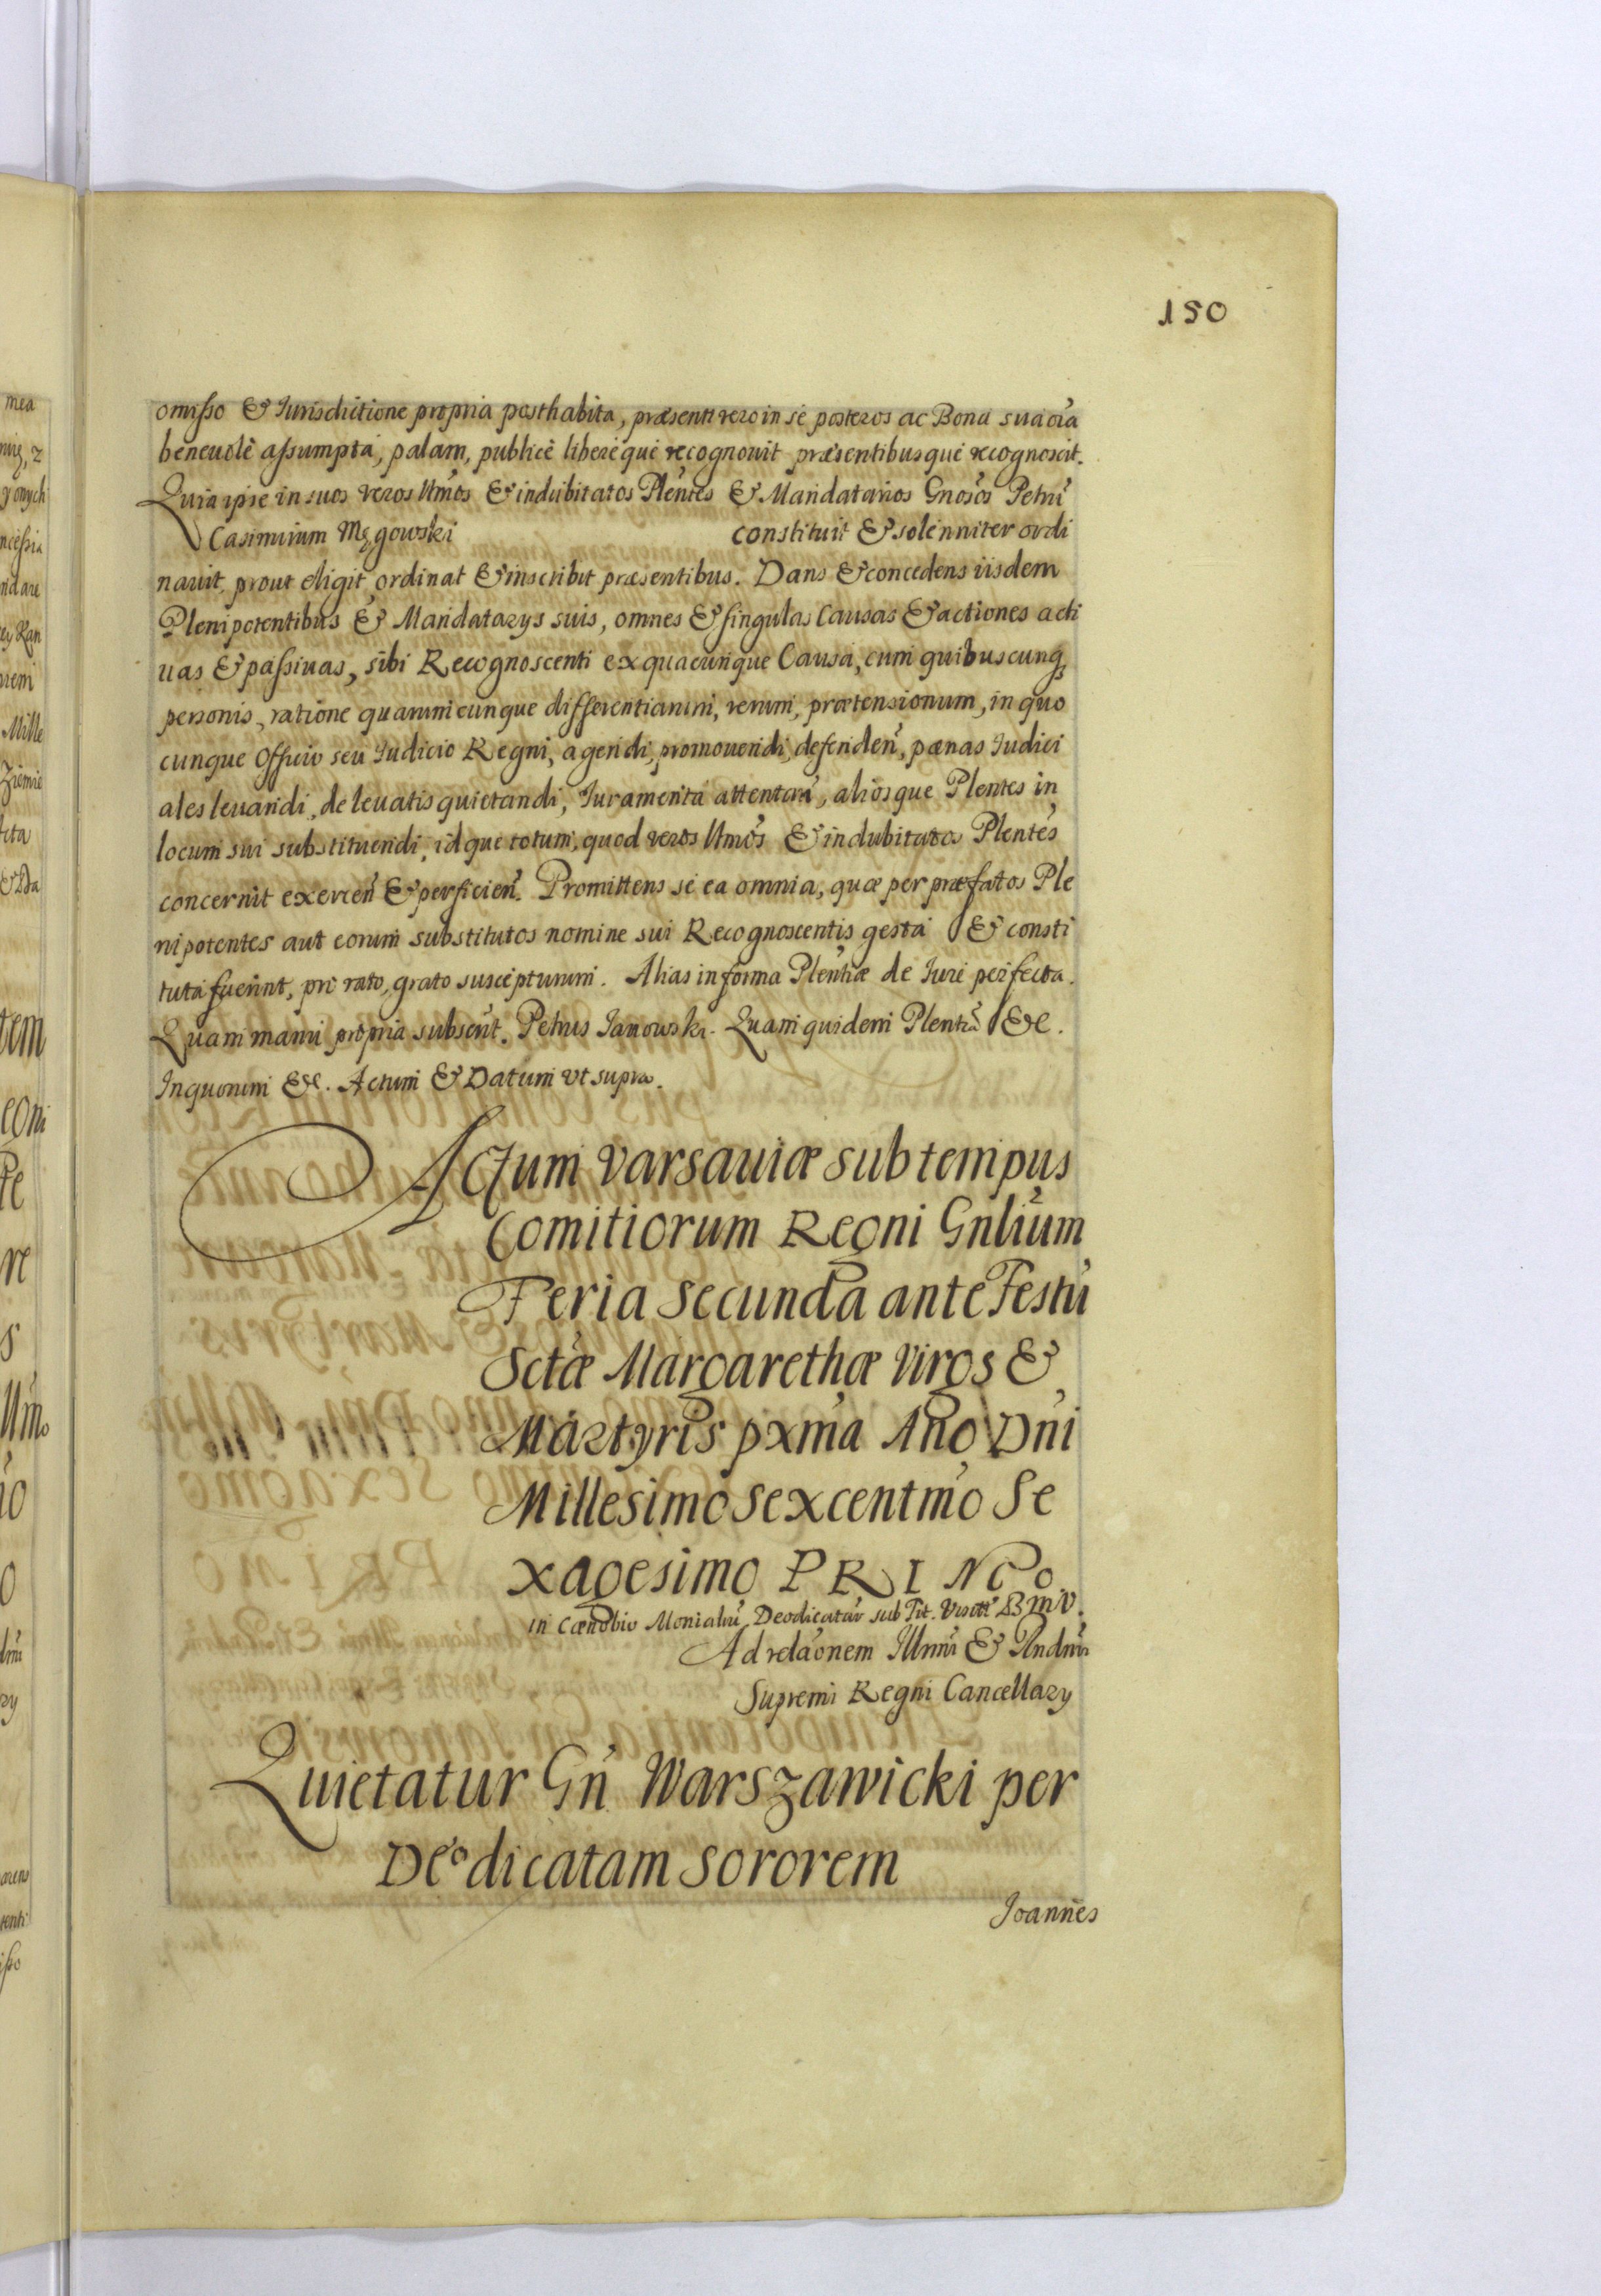 150
omisso & Jurisdictione propria posthabita, præsenti vero in se posteros ac Bona sua oĩa
beneuolè assumpta, palam, publicè liberè que recognouit præsentibusque recognoscit.
Quia ipse in suos veros Ltmos & indubitatos Plentes & Mandatarios Gnosos Petrũ
Casimirum Męgowski constituit & solenniter ordi
nauit, prout eligit, ordinat & inscribit præsentibus. Dans & concedens iisdem
Plenipotentibus & Mandatarys suis, omnes & singulas Causas & actiones acti
uas & passiuas, sibi Recognoscenti ex quacunque Causa, cum quibuscunq
personis, ratione quarumcunque differentiarum, rerum, prætensionum, in quo
cunque Officio seu Iudicio Regni, agendi, promouendi, defenden, pænas Iudici
ales leuandi, de leuatis quietandi, Iuramenta attentan, aliosque Plentes in
locum sui substituendi, idque totum, quod veros Ltmos & indubitatos Plentes
concernit exercen & perficien. Promittens se ea omnia, quæ per præfatos Ple
nipotentes aut eorum substitutos nomine sui Recognoscentis gesta & consti
tuta fuerint, pro rato, grato suscepturum. Alias in forma Plentiæ de Iure perfecta.
Quam manu propria subscrit. Petrus Janowski. Quam quidem Plentiã &c.
In quorum &c. Actum & Datum vt supra.
Actum Varsauiæ sub tempus
Comitiorum Regni Gnlium
Feria Secunda ante Festũ
Sctæ Margarethæ Virgs &
Martyris pxma Ano Dni
Millesimo Sexcentmo Se
xagesimo PRIMO
in Cænobio Monialiũ Deodicatar sub Tit. Visitt B M V.
Ad relaonem Illmi & Rndmi
Supremi Regni Cancellary
Quietatur Gn Warszawicki per
Deodicatam Sororem
Joannes